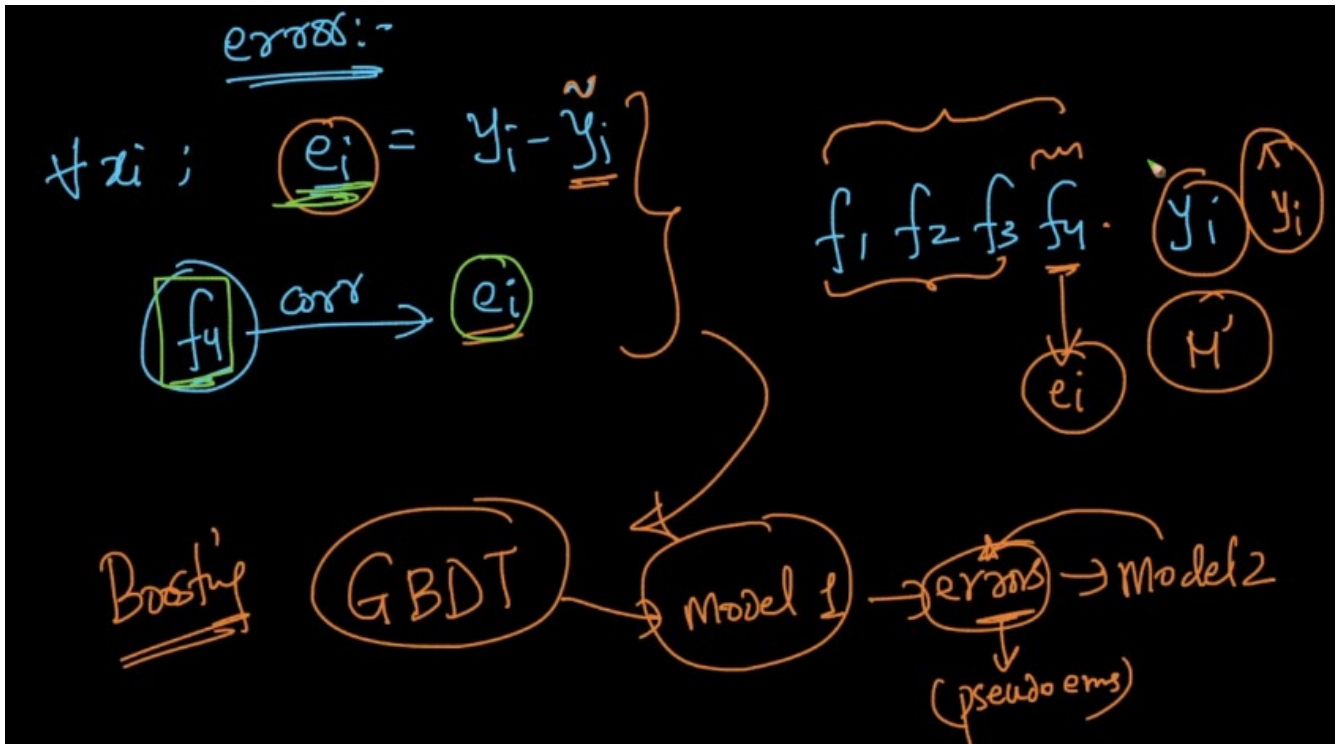 error:-
∀ xi ; ei = yi - ỹi
f4 corr → ei
f1 f2 f3 f4 . yi ŷi
ei
M'
Boosting GBDT → Model 1 → errors → Model 2
(pseudo errs)